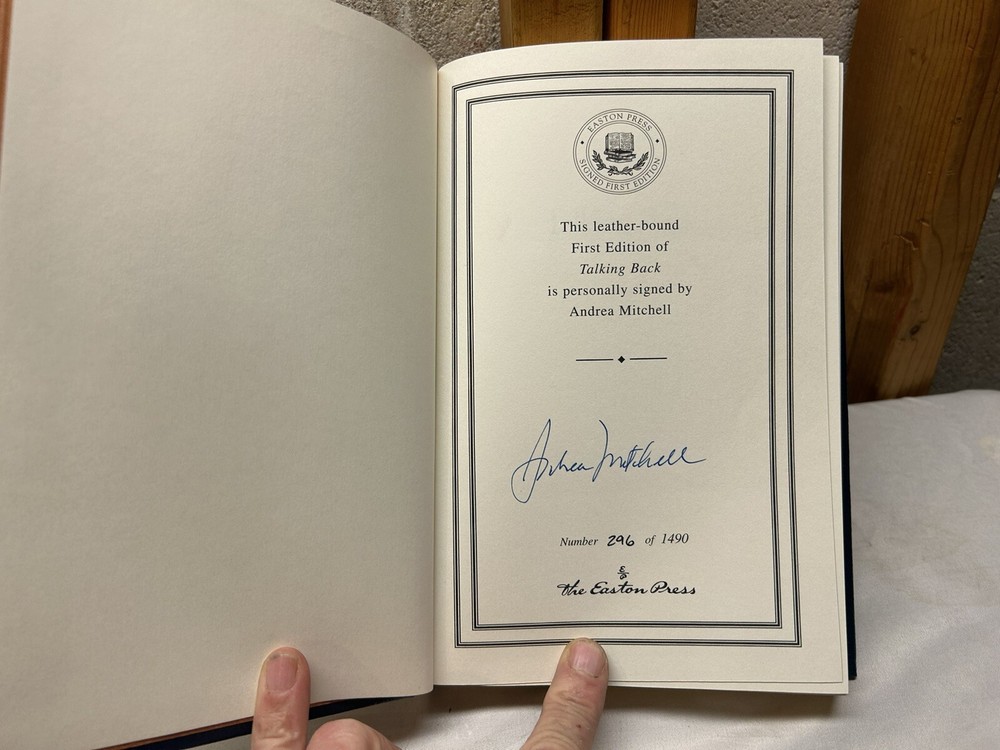 EASTON PRESS
SIGNED FIRST EDITION
This leather-bound
First Edition of
Talking Back
is personally signed by
Andrea Mitchell
Andrea Mitchell
Number 296 of 1490
E/P
the Easton Press